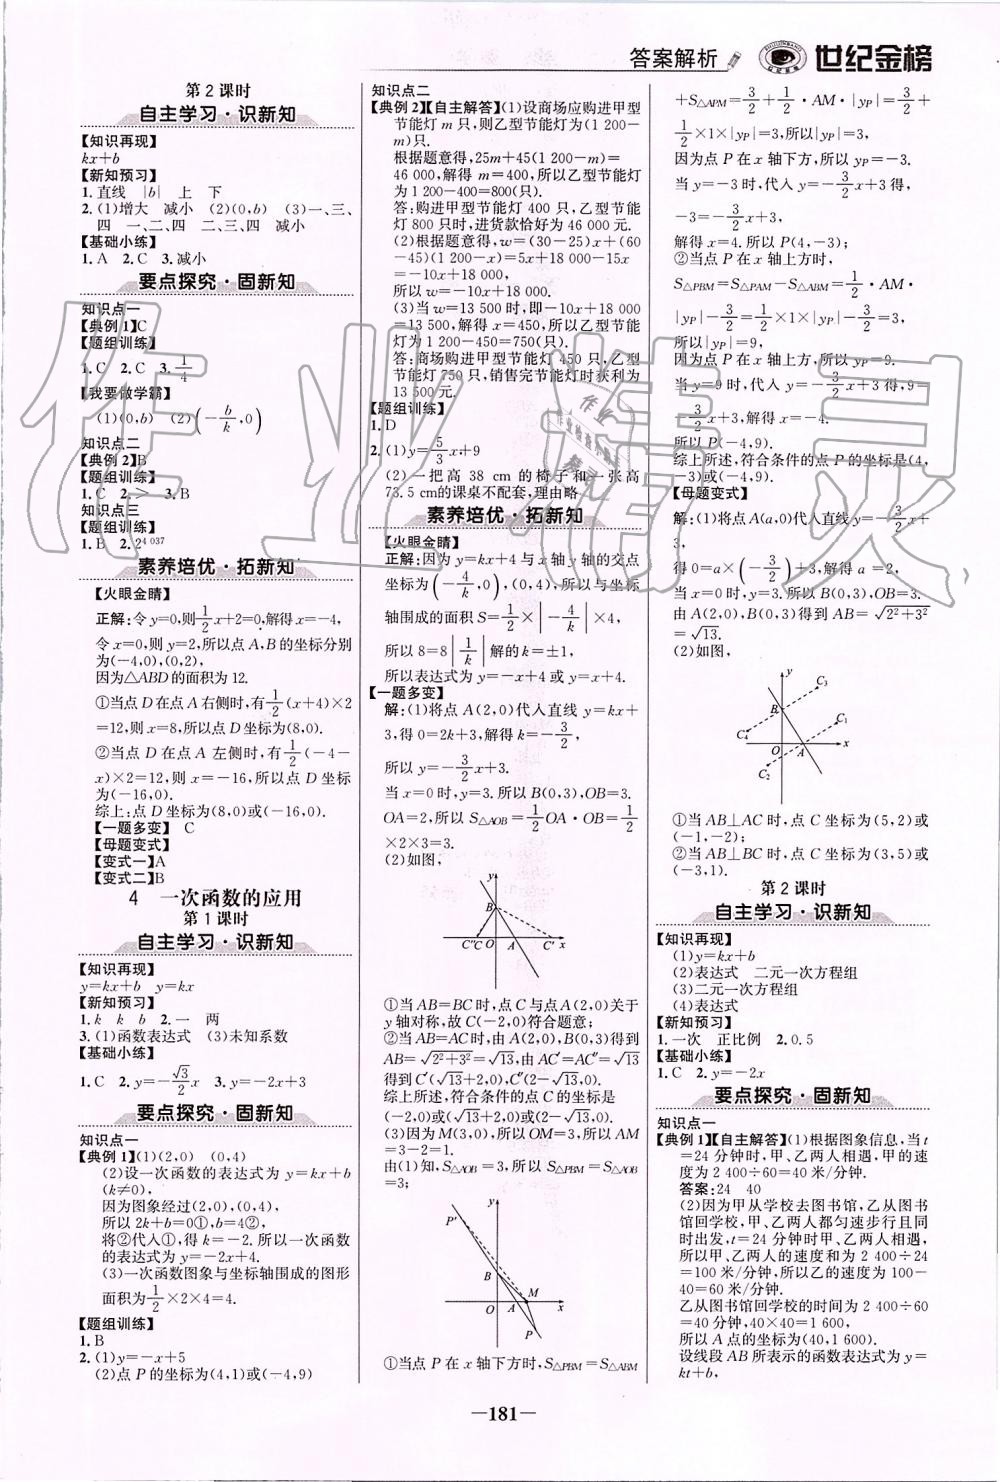 答案解析
世纪金榜
第2课时
自主学习·识新知
【知识再现】
kx+b
【新知预习】
1.直线 |b| 上 下
2.(1)增大 减小 (2)(0,b) (3)一、三、
四 一、二、四 二、三、四 减小
【基础小练】
1.A 2.C 3.减小
要点探究·固新知
知识点一
【典例1】C
【题组训练】
1.C 2.C 3.1/4
【我要做学霸】
(1)(0,b) (2)(-b/k,0)
知识点二
【典例2】B
【题组训练】
1.C 2.> 3.B
知识点三
【题组训练】
1.B 2.2^4 037
素养培优·拓新知
【火眼金睛】
正解:令y=0,则1/2x+2=0,解得x=-4,
令x=0,则y=2,所以点A,B的坐标分别
为(-4,0),(0,2),
因为△ABD的面积为12.
①当点D在点A右侧时,有1/2(x+4)×2
=12,则x=8,所以点D坐标为(8,0).
②当点D在点A左侧时,有1/2(-4-
x)×2=12,则x=-16,所以点D坐标
为(-16,0).
综上:点D坐标为(8,0)或(-16,0).
【一题多变】 C
【母题变式】
【变式一】A
【变式二】B
4 一次函数的应用
第1课时
自主学习·识新知
【知识再现】
y=kx+b y=kx
【新知预习】
1.k k b 2.一 两
3.(1)函数表达式 (3)未知系数
【基础小练】
1.C 2.y=-√3/2x 3.y=-2x+3
要点探究·固新知
知识点一
【典例1】(1)(2,0) (0,4)
(2)设一次函数的表达式为y=kx+b
(k≠0),
因为图象经过(2,0),(0,4),
所以2k+b=0①,b=4②,
将②代入①,得k=-2.所以一次函数
的表达式为y=-2x+4.
(3)一次函数图象与坐标轴围成的图形
面积为1/2×2×4=4.
【题组训练】
1.B
2.(1)y=-x+5
(2)点P的坐标为(4,1)或(-4,9)
知识点二
【典例2】【自主解答】(1)设商场应购进甲型
节能灯m只,则乙型节能灯为(1 200-
m)只.
根据题意得,25m+45(1 200-m)=
46 000,解得m=400,所以乙型节能灯
为1 200-400=800(只).
答:购进甲型节能灯400只,乙型节能
灯800只时,进货款恰好为46 000元.
(2)根据题意得,w=(30-25)x+(60
-45)(1 200-x)=5x+18 000-15x
=-10x+18 000,
所以w=-10x+18 000.
(3)当w=13 500时,即-10x+18 000
=13 500,解得x=450,所以乙型节能
灯为1 200-450=750(只).
答:商场购进甲型节能灯450只,乙型
节能灯750只,销售完节能灯时获利为
13 500元.
【题组训练】
1.D
2.(1)y=5/3x+9
(2)一把高38 cm的椅子和一张高
73.5 cm的课桌不配套,理由略
素养培优·拓新知
【火眼金睛】
正解:因为y=kx+4与x轴y轴的交点
坐标为(-4/k,0),(0,4),所以与坐标
轴围成的面积S=1/2×|-4/k|×4,
所以8=8|1/k|解的k=±1,
所以表达式为y=-x+4或y=x+4.
【一题多变】
解:(1)将点A(2,0)代入直线y=kx+
3,得0=2k+3,解得k=-3/2,
所以y=-3/2x+3.
当x=0时,y=3.所以B(0,3),OB=3.
OA=2,所以S△AOB=1/2OA·OB=1/2
×2×3=3.
(2)如图,
y
B
C″C O A C′ x
①当AB=BC时,点C与点A(2,0)关于
y轴对称,故C(-2,0)符合题意;
②当AB=AC时,由A(2,0),B(0,3)得到
AB=√2²+3²=√13,由AC′=AC″=√13
得到C′(√13+2,0),C″(2-√13,0).
综上所述,符合条件的点C的坐标是
(-2,0)或(√13+2,0)或(2-√13,0)
(3)因为M(3,0),所以OM=3,所以AM
=3-2=1.
由(1)知,S△AOB=3,所以S△PBM=S△AOB
=3;
P′ y
B
M
O A x
P
①当点P在x轴下方时,S△PBM=S△ABM
+S△APM=3/2+1/2·AM·|yP|=3/2+
1/2×1×|yP|=3,所以|yP|=3,
因为点P在x轴下方,所以yP=-3.
当y=-3时,代入y=-3/2x+3得,
-3=-3/2x+3,
解得x=4.所以P(4,-3);
②当点P在x轴上方时,
S△PBM=S△PAM-S△ABM=1/2·AM·
|yP|-3/2=1/2×1×|yP|-3/2=3,
所以|yP|=9.
因为点P在x轴上方,所以yP=9.
当y=9时,代入y=-3/2x+3得,9=
-3/2x+3,解得x=-4.
所以P(-4,9).
综上所述,符合条件的点P的坐标是(4,
-3)或(-4,9).
【母题变式】
解:(1)将点A(a,0)代入直线y=-3/2x+
3,
得0=a×(-3/2)+3,解得a=2,
当x=0时,y=3.所以B(0,3),OB=3.
由A(2,0),B(0,3)得到AB=√2²+3²
=√13.
(2)如图,
y
C3
B
C4 C1
O A x
C2
①当AB⊥AC时,点C坐标为(5,2)或
(-1,-2);
②当AB⊥BC时,点C坐标为(3,5)或
(-3,1).
第2课时
自主学习·识新知
【知识再现】
(1)y=kx+b
(2)表达式 二元一次方程组
(3)二元一次方程组
(4)表达式
【新知预习】
1.一次 正比例 2.0.5
【基础小练】
1.C 2.y=-2x
要点探究·固新知
知识点一
【典例1】【自主解答】(1)根据图象信息,当t
=24分钟时,甲、乙两人相遇,甲的速
度为2 400÷60=40米/分钟.
答案:24 40
(2)因为甲从学校去图书馆,乙从图书
馆回学校,甲、乙两人都匀速步行且同
时出发,t=24分钟时甲、乙两人相遇,
所以甲、乙两人的速度和为2 400÷24
=100米/分钟,所以乙的速度为100-
40=60(米/分钟).
乙从图书馆回学校的时间为2 400÷60
=40分钟,40×40=1 600,
所以A点的坐标为(40,1 600).
设线段AB所表示的函数表达式为y=
kt+b,
—181—
作业精灵